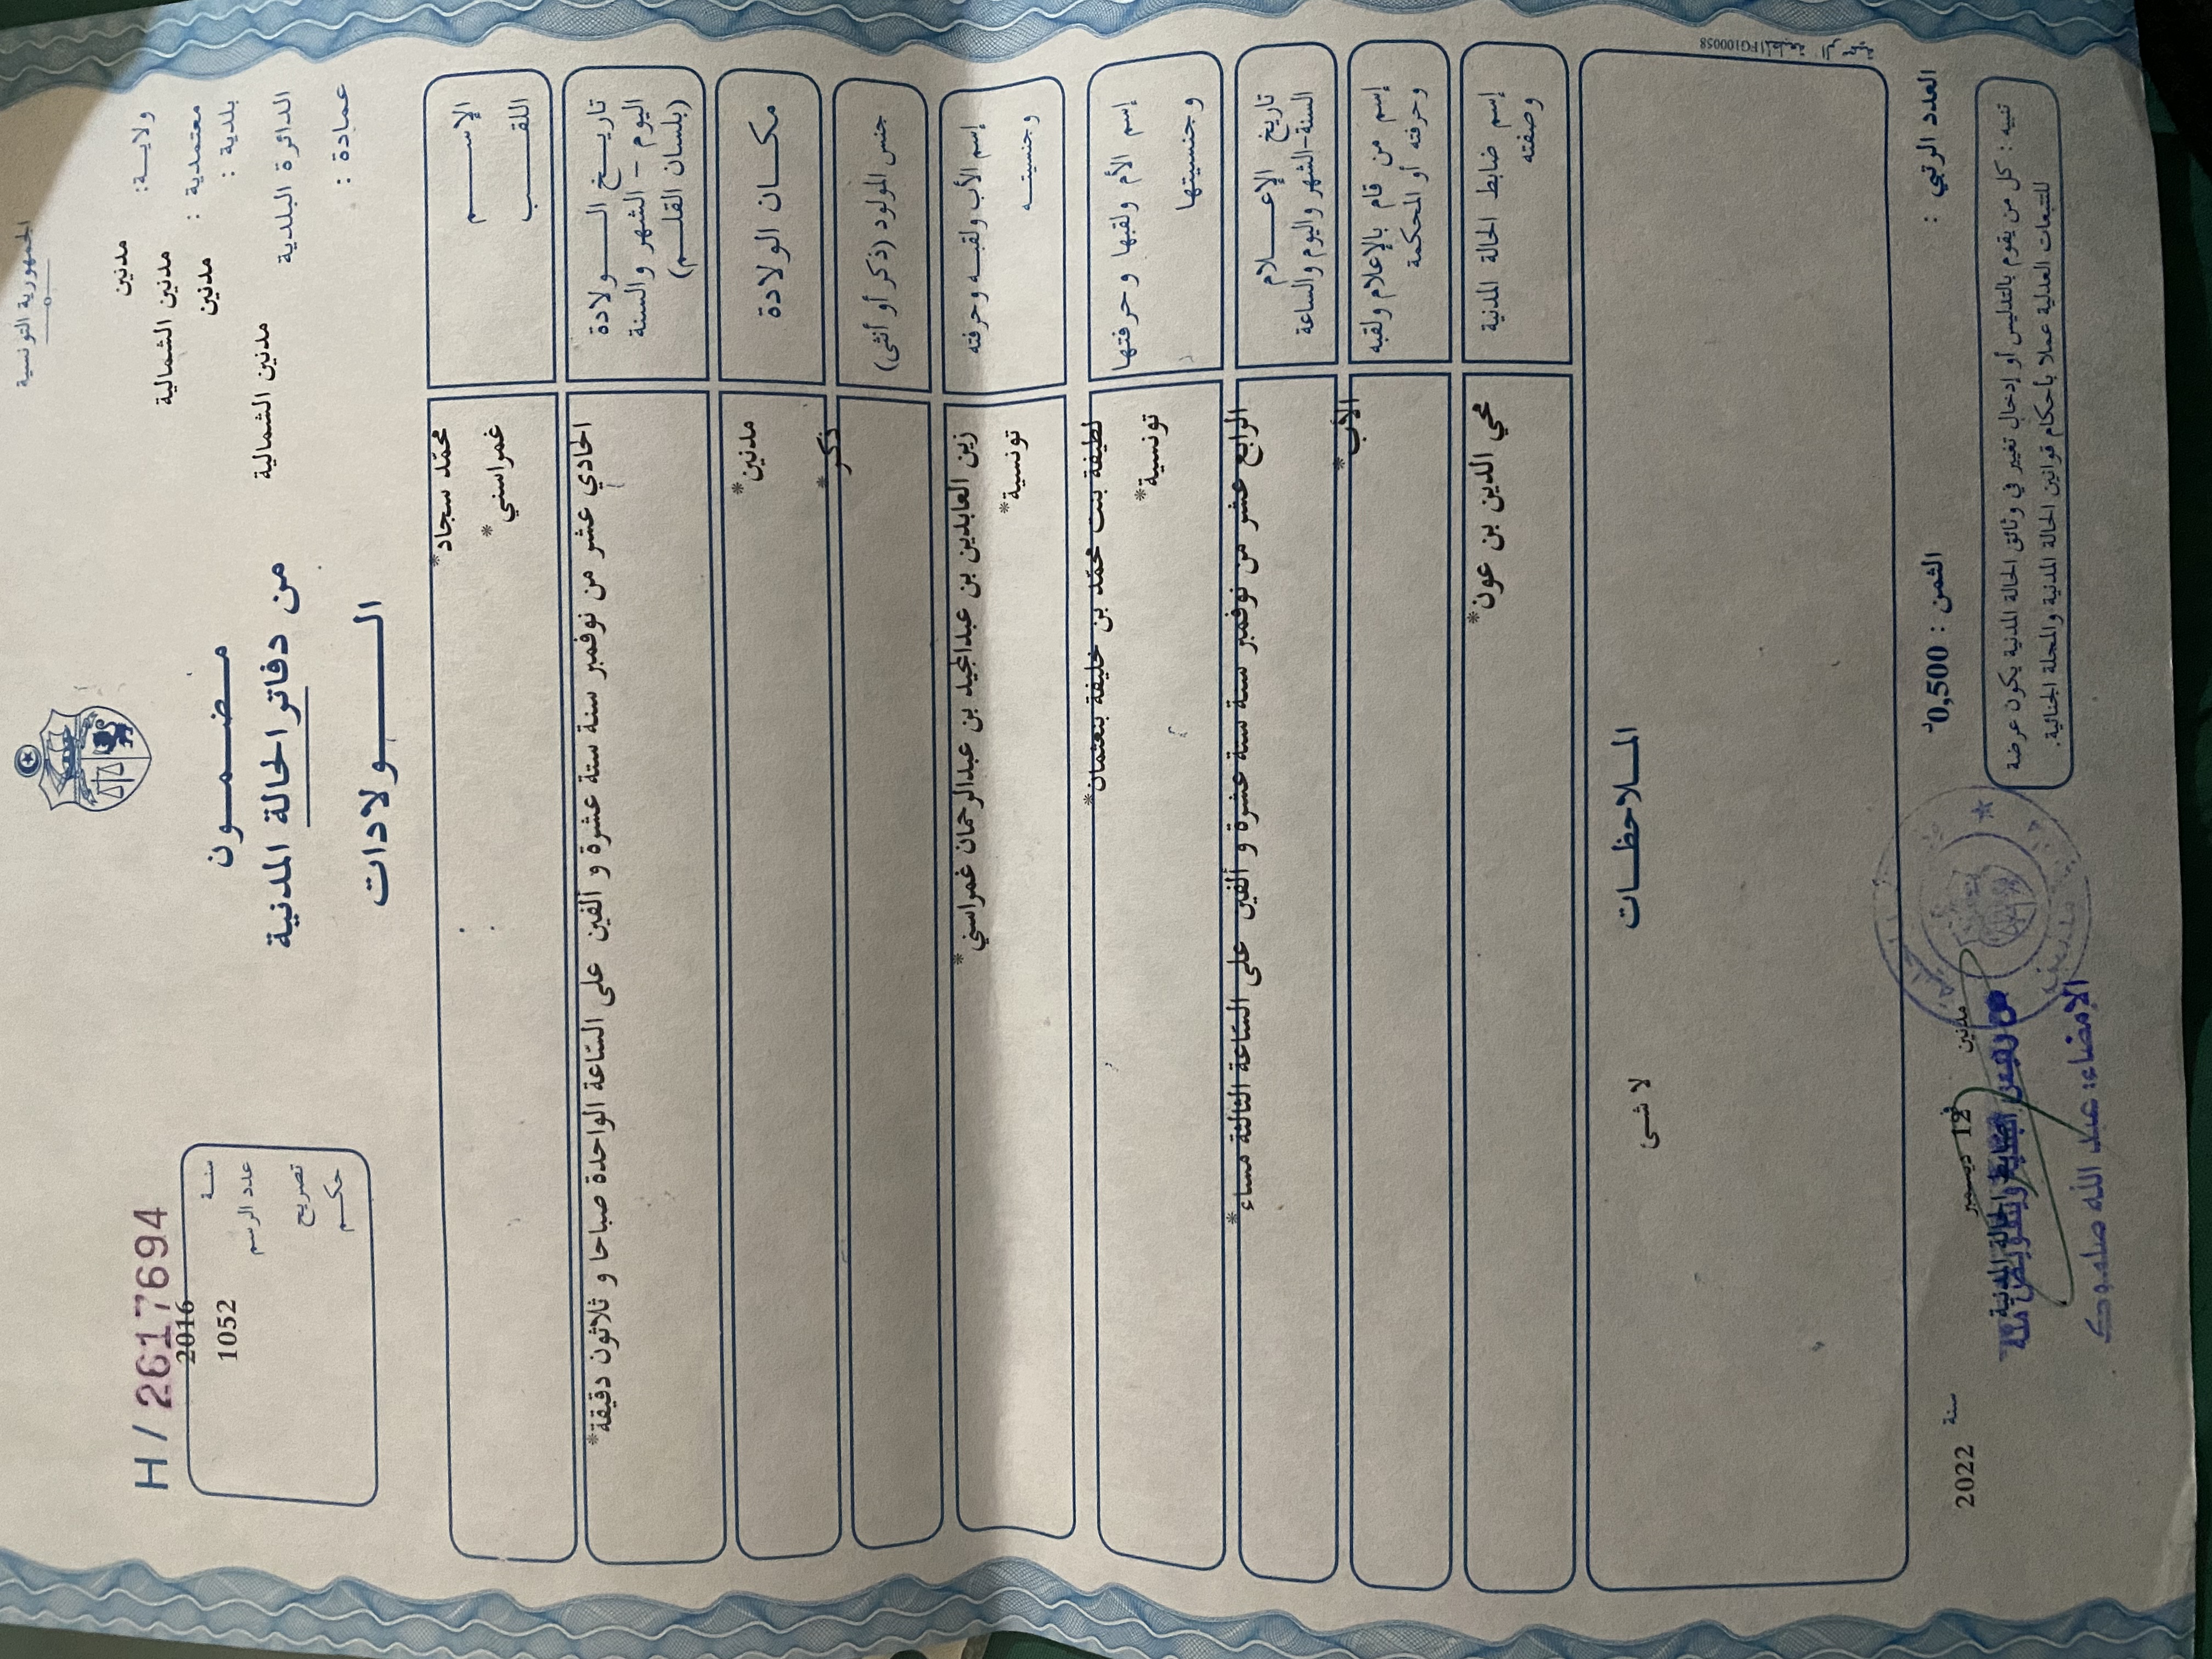 الجمهورية التونسية
ولايـــة: مدنين
معتمدية : مدنين الشمالية
بلدية : مدنين
الدائرة البلدية مدنين الشمالية
عمادة :
مـضـمـــون
من دفاتر الحالة المدنية
الــــولادات
H / 2617694
سنـة 2016
عدد الرسم 1052
تصريح
حكـم
الإســـــم محمّد سجاد*
اللقـــــب غمراسني*
تاريــخ الـــولادة
اليوم - الشهر والسنة
(بلسان القلـــم)
الحادي عشر من نوفمبر سنة ستة عشرة و ألفين على السّاعة الواحدة صباحا و ثلاثون دقيقة*
مكــان الولادة مدنين*
جنس المولود (ذكر أو أنثى) ذكر*
إسم الأب ولقبـه وحرفته زين العابدين بن عبدالمجيد بن عبدالرحمان غمراسني*
وجنسيتـــه تونسية*
إسم الأم ولقبها وحرفتها لطيفة بنت محمّد بن خليفة بنعثمان*
وجنسيتها تونسية*
تاريخ الإعـــــلام
السنة-الشهر واليوم والساعة
الرابع عشر من نوفمبر سنة ستة عشرة و ألفين على السّاعة الثالثة مساء*
إسم من قام بالإعلام ولقبه
وحرفته أو المحكمة
الأب*
إسم ضابط الحالة المدنية
وصفته
محي الدين بن عون*
المــلاحظــات
لا شى
FG100058
العدد الرتبي :
الثمن : 0,500 د
مدنين في 12 ديسمبر سنة 2022
تنبيه : كل من يقوم بالتدليس أو إدخال تغيير في وثائق الحالة المدنية يكون عرضة
للتتبعات العدلية عملا بأحكام قوانين الحالة المدنية والمجلة الجنائية.
ضابط الحالة المدنية
الإمضاء: عبد الله صلموك